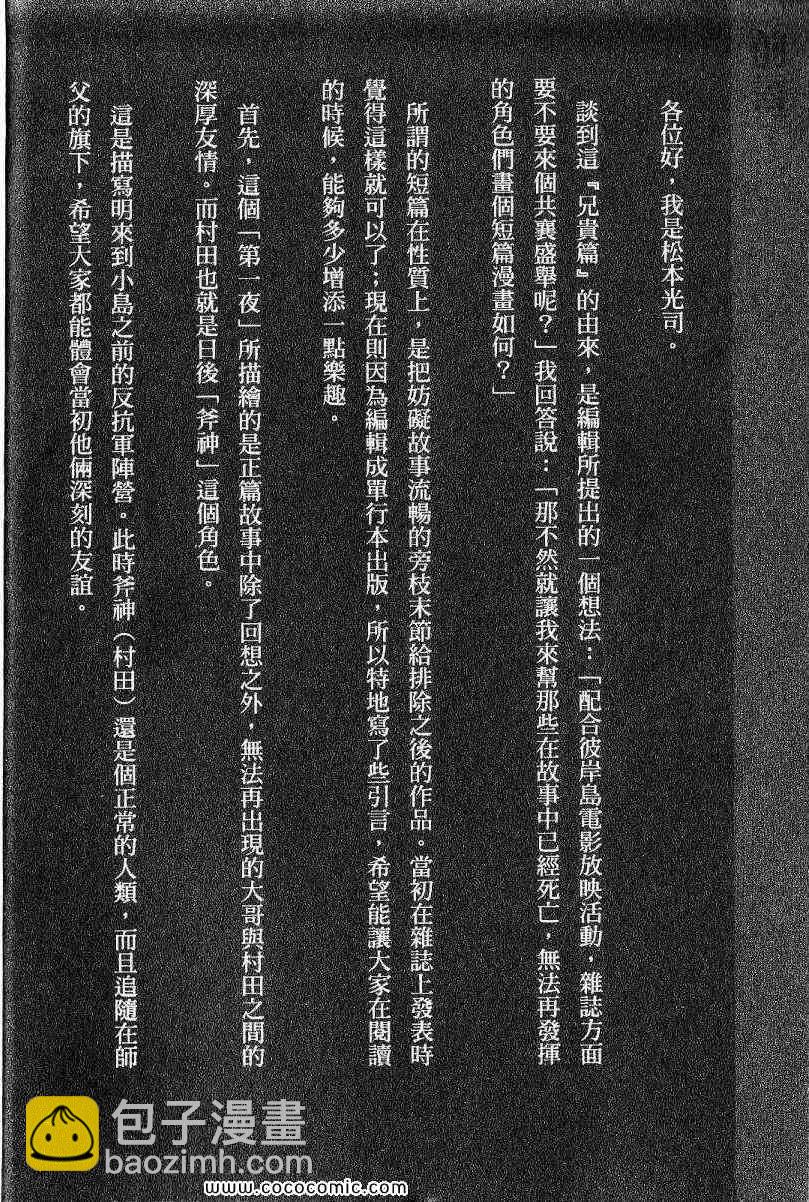 各位好，我是松本光司。
談到這『兄貴篇』的由來，是編輯所提出的一個想法：「配合彼岸島電影放映活動，雜誌方面
要不要來個共襄盛舉呢？」我回答說：「那不然就讓我來幫那些在故事中已經死亡，無法再發揮
的角色們畫個短篇漫畫如何？」
所謂的短篇在性質上，是把妨礙故事流暢的旁枝末節給排除之後的作品。當初在雜誌上發表時
覺得這樣就可以了；現在則因為編輯成單行本出版，所以特地寫了些引言，希望能讓大家在閱讀
的時候，能夠多少增添一點樂趣。
首先，這個「第一夜」所描繪的是正篇故事中除了回想之外，無法再出現的大哥與村田之間的
深厚友情。而村田也就是日後「斧神」這個角色。
這是描寫明來到小島之前的反抗軍陣營。此時斧神（村田）還是個正常的人類，而且追隨在師
父的旗下，希望大家都能體會當初他倆深刻的友誼。
包子漫畫
baozimh.com
www.cococomic.com